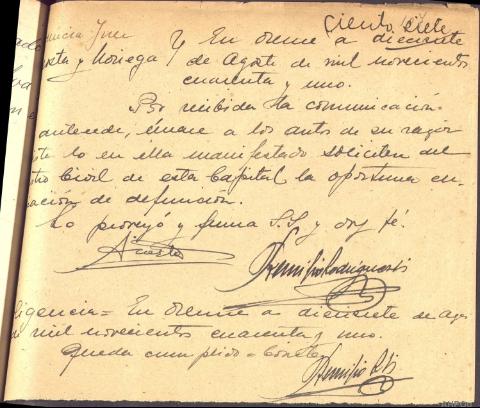 Ciento siete
En Orense a diecisiete
y Noriega de Agosto de mil novecientos
cuarenta y uno.
Por recibida la comunicación
antecede, únase a los autos de su razón
lo en ella manifestado solicitese del
Civil de esta Capital la oportuna
de defunción.
Lo proveyó y firma S.Sª y doy fé.
Remigio Rodriguez
ligencia = En Orense a diecisiete de
mil novecientos cuarenta y uno.
Queda cumplido =
Remigio